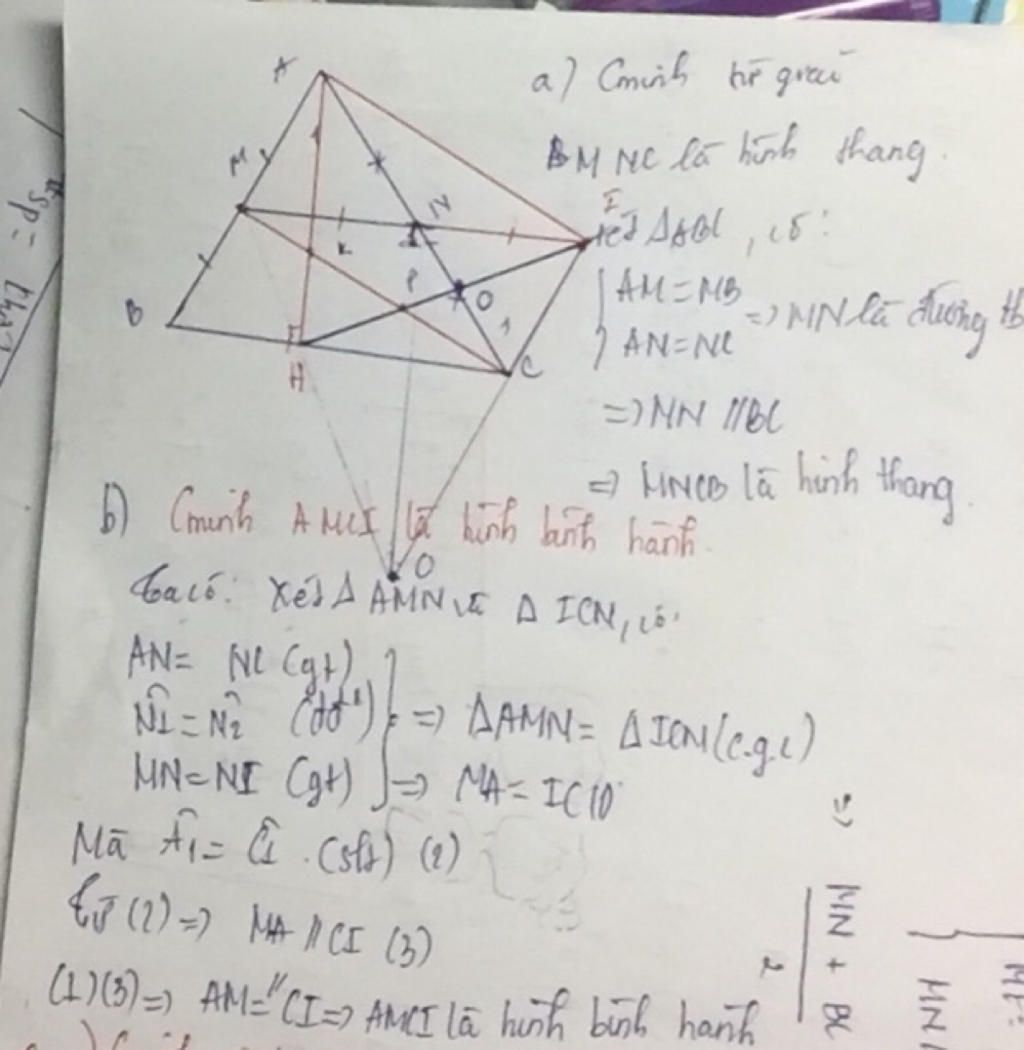 a) Cminh tứ giác
BMNC là hình thang.
Xét ΔABC, có:
AM = MB
AN = NC
=> MN là đường tb
=> MN // BC
=> MNCB là hình thang.
b) Cminh AMCI là hình bình hành.
Ta có: Xét Δ AMN và Δ ICN, có:
AN = NC (gt)
N̂1 = N̂2 (đđ)
MN = NI (gt)
=> ΔAMN = ΔICN (c.g.c)
=> MA = IC (1)
Mà Â1 = Ĉ1 (slt) (2)
Từ (2) => MA // CI (3)
(1)(3) => AM =// CI => AMCI là hình bình hành
A
M
N
I
K
P
O
B
H
C
O
=>
MN + BC
2